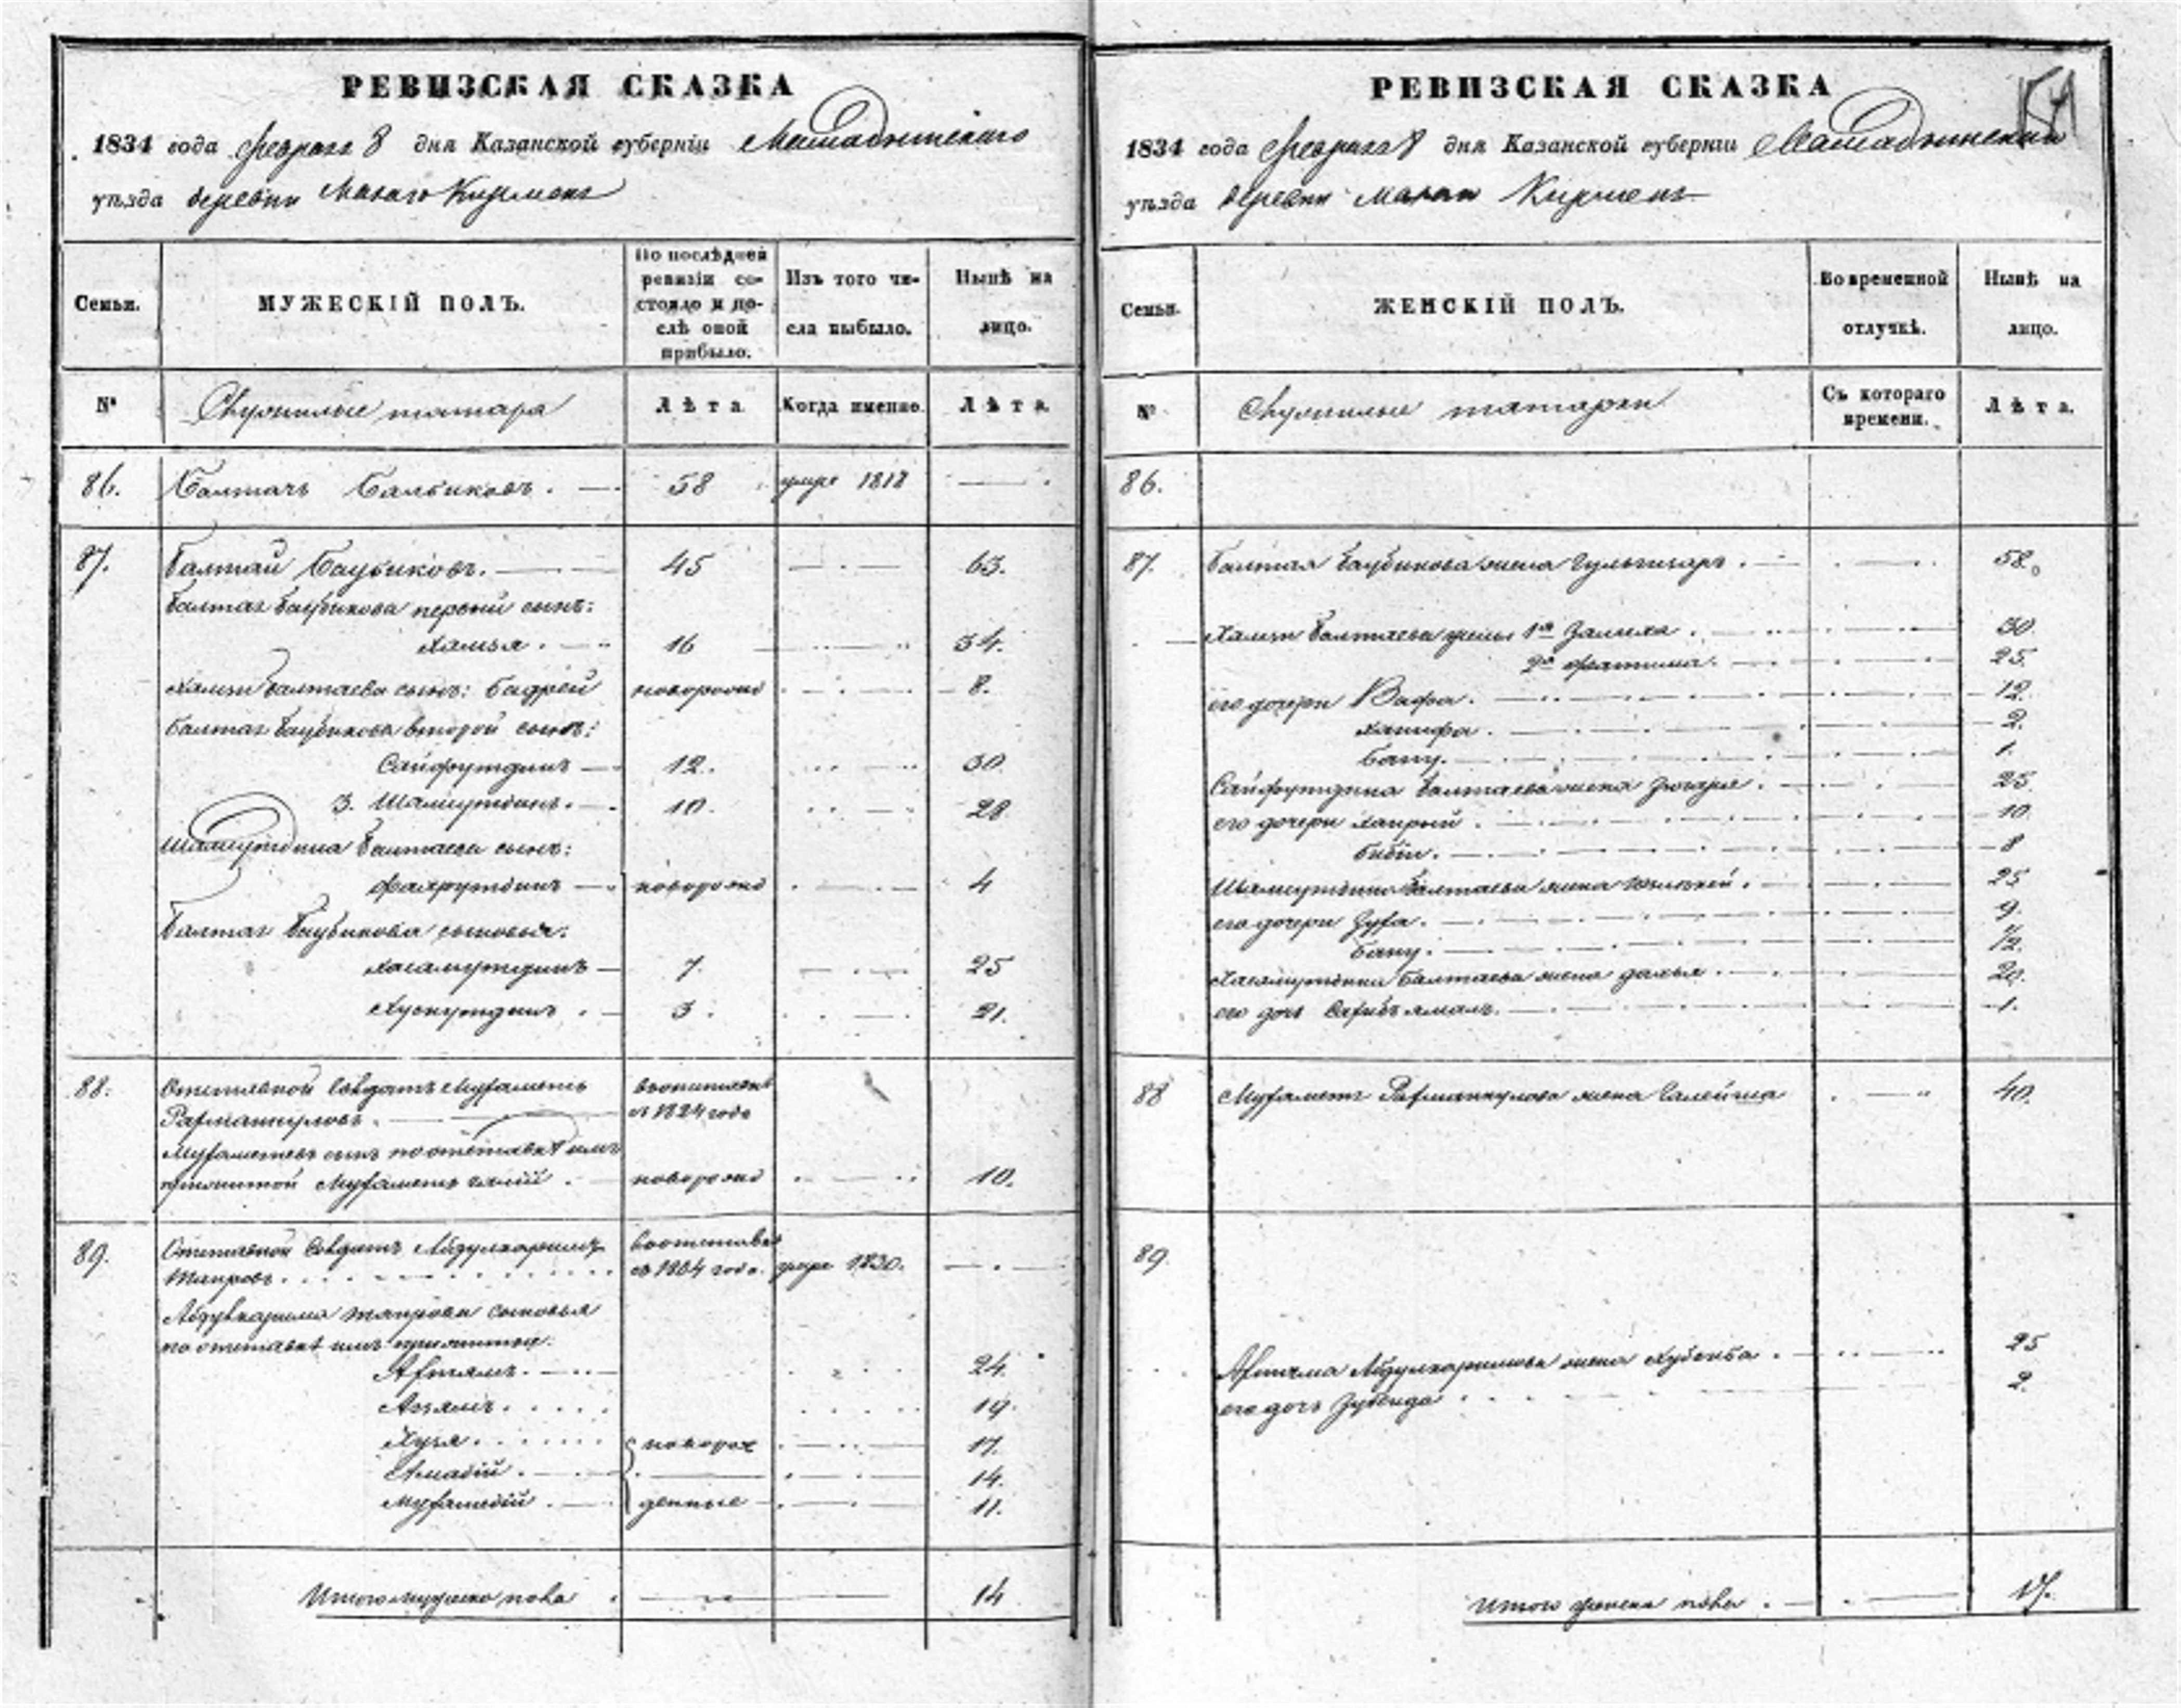 РЕВИЗСКАЯ СКАЗКА
1834 года февраля 8 дня Казанской губерніи Мамадышскаго
уѣзда деревни Малаго Кирмень
Семьи.
МУЖЕСКІЙ ПОЛЪ.
По послѣдней ревизіи состояло и послѣ оной прибыло.
Изъ того числа выбыло.
Нынѣ на лицо.
№ Служилые татара Лѣта Когда именно. Лѣта
86. Балтачь 58 умре 1818
87. Балтай Баубиковъ. 45 63.
Балтая Баубикова первый сынъ:
Хамзя. 16 34.
Хамзи Балтаева сынъ: Бадрей новорожд 8.
Балтая Баубикова второй сынъ:
Сайфутдинъ 12. 30
3. Шамсутдинъ. 10. 28
Шамсутдина Балтаева сынъ:
Фахрутдинъ новорожд 4
Балтая Баубикова сыновья:
Хасамутдинъ 7. 25
Хуснутдинъ 3. 21.
88. Отставной Солдатъ Мухаметь
Рахманкуловъ. съ 1824 года
Мухаметевъ сынъ по отставкѣ имъ
прижитой Мухаметь новорожд 10.
89. Отставной Солдатъ Абдулкаримъ въ отставке
Таировъ. съ 1804 года. умре 1830.
Абдулкарима Таирова сыновья
по отставкѣ имъ прижитыя:
Афтямъ. 24.
Агзямъ. 19.
Хузя. новорож 17.
14.
денные 11.
Итого мужеска пола 14
РЕВИЗСКАЯ СКАЗКА
1834 года февраля 8 дня Казанской губерніи Мамадышскаго
уѣзда деревни Малаго Кирмень
Семьи.
ЖЕНСКІЙ ПОЛЪ.
Во временной отлучкѣ.
Нынѣ на лицо.
№ Служилые татарки Съ котораго времени. Лѣта.
86.
87. Балтая Баубикова жена 58.
Хамзи Балтаева жены 1я Залиха. 30.
2я Фатима. 25.
его дочери Вафа. 12.
Ханифа. 2.
Бану. 1.
Сайфутдина Балтаева жена 25.
его дочери 10.
Биби. 8
Шамсутдина Балтаева жена 25
его дочери Зуфа. 9.
Бану. 1/2.
Хасамутдина Балтаева жена 20.
его дочь 1.
88 Мухаметя Рахманкулова жена Галейша 40.
89.
Афтяма Абдулкаримова жена 25
его дочь Зубейда 2.
Итого женска пола 17.